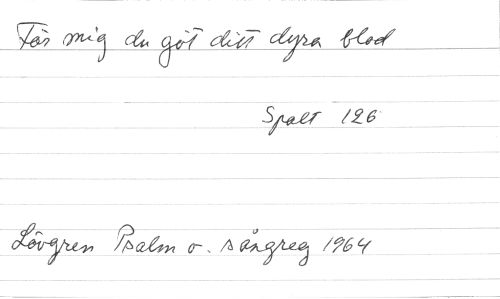 För mig du göt ditt dyra blod
Spalt 126
Lövgren Psalm o. sångreg 1964